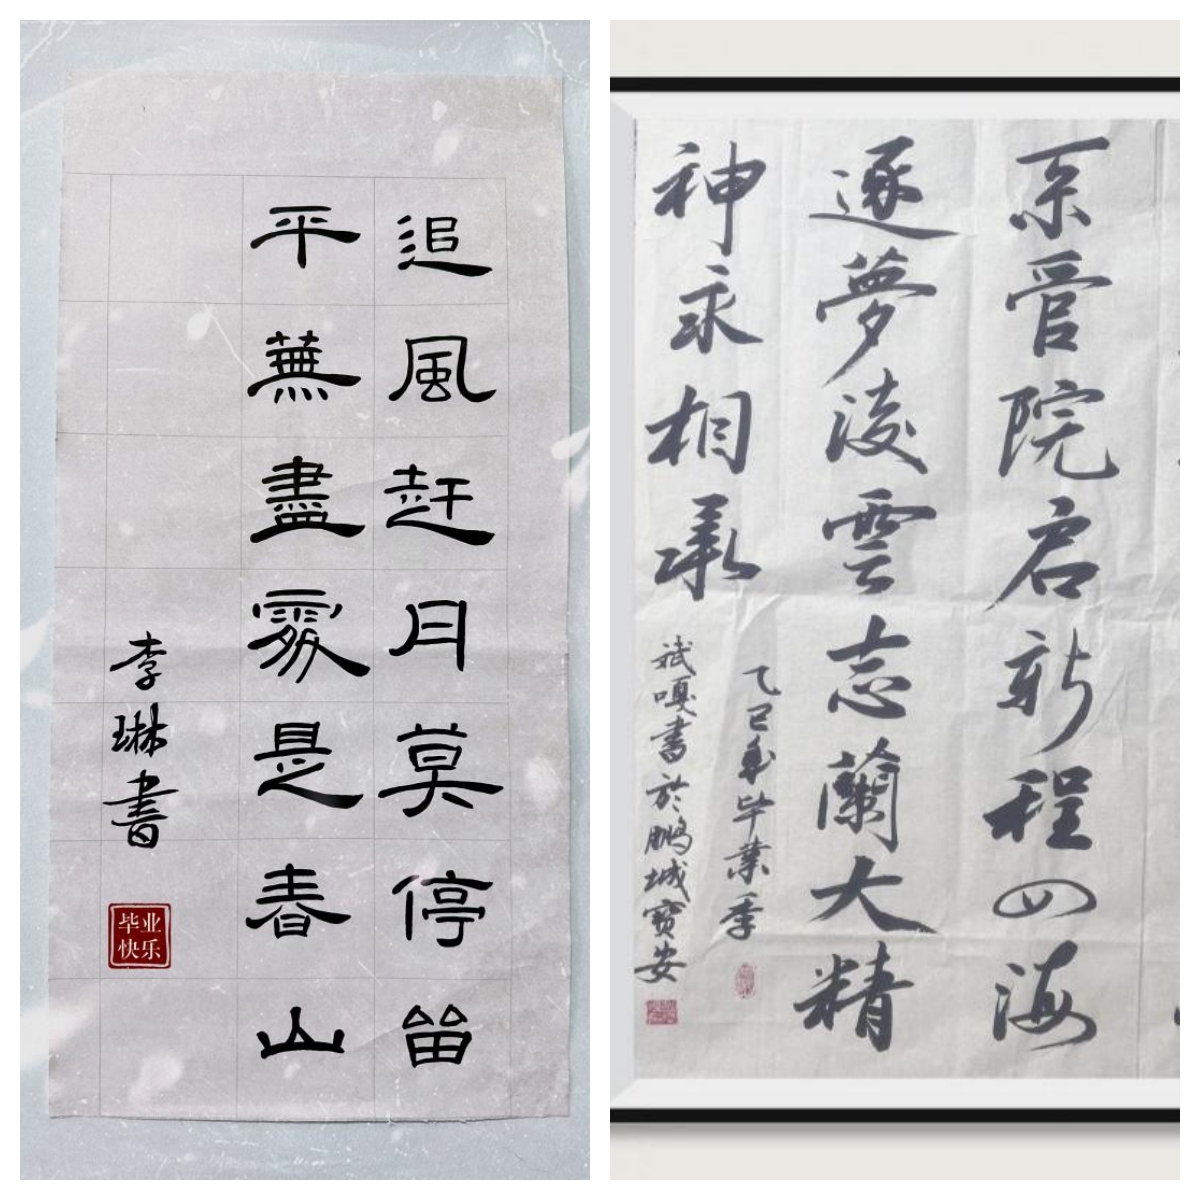 追風赶月莫停留
平蕪盡處是春山
李琳書
毕业快乐
系管院启新程四海
逐夢淩雲志蘭大精
神永相承
乙巳年毕業季
斌嘎書於鹏城寶安